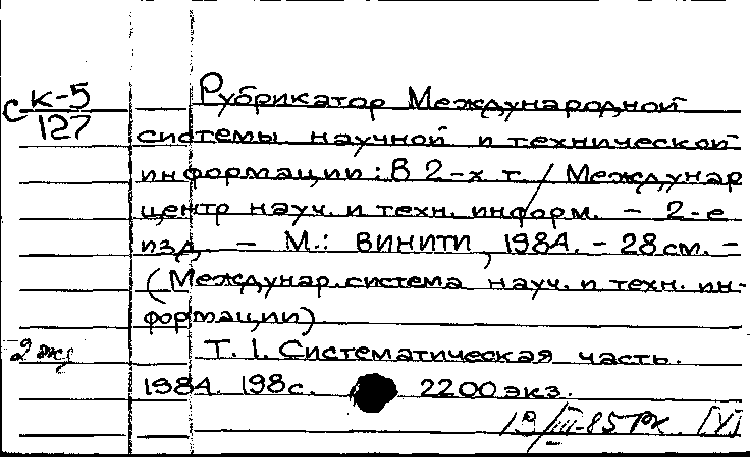 С К-5
127
Рубрикатор Международной
системы научной и технической
информации: В 2-х т. / Междунар
центр науч. и техн. информ. - 2-е
изд. - М.: ВИНИТИ, 1984. - 28 см. -
(Междунар. система науч. и техн. ин-
формации)
2 экз
Т. 1. Систематическая часть.
1984. 198 с. 2200 экз.
19/III-85 РК [V]